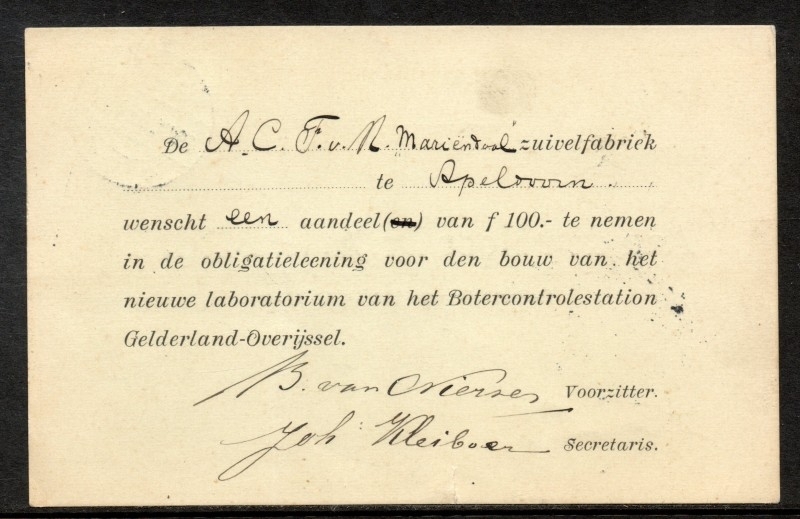 De A. C. F. v. N. "Mariëndaal" zuivelfabriek
te Apeldoorn.
wenscht een aandeel(en) van f 100.- te nemen
in de obligatieleening voor den bouw van het
nieuwe laboratorium van het Botercontrolestation
Gelderland-Overijssel.
B. van Voorzitter.
Joh Kleiboer Secretaris.